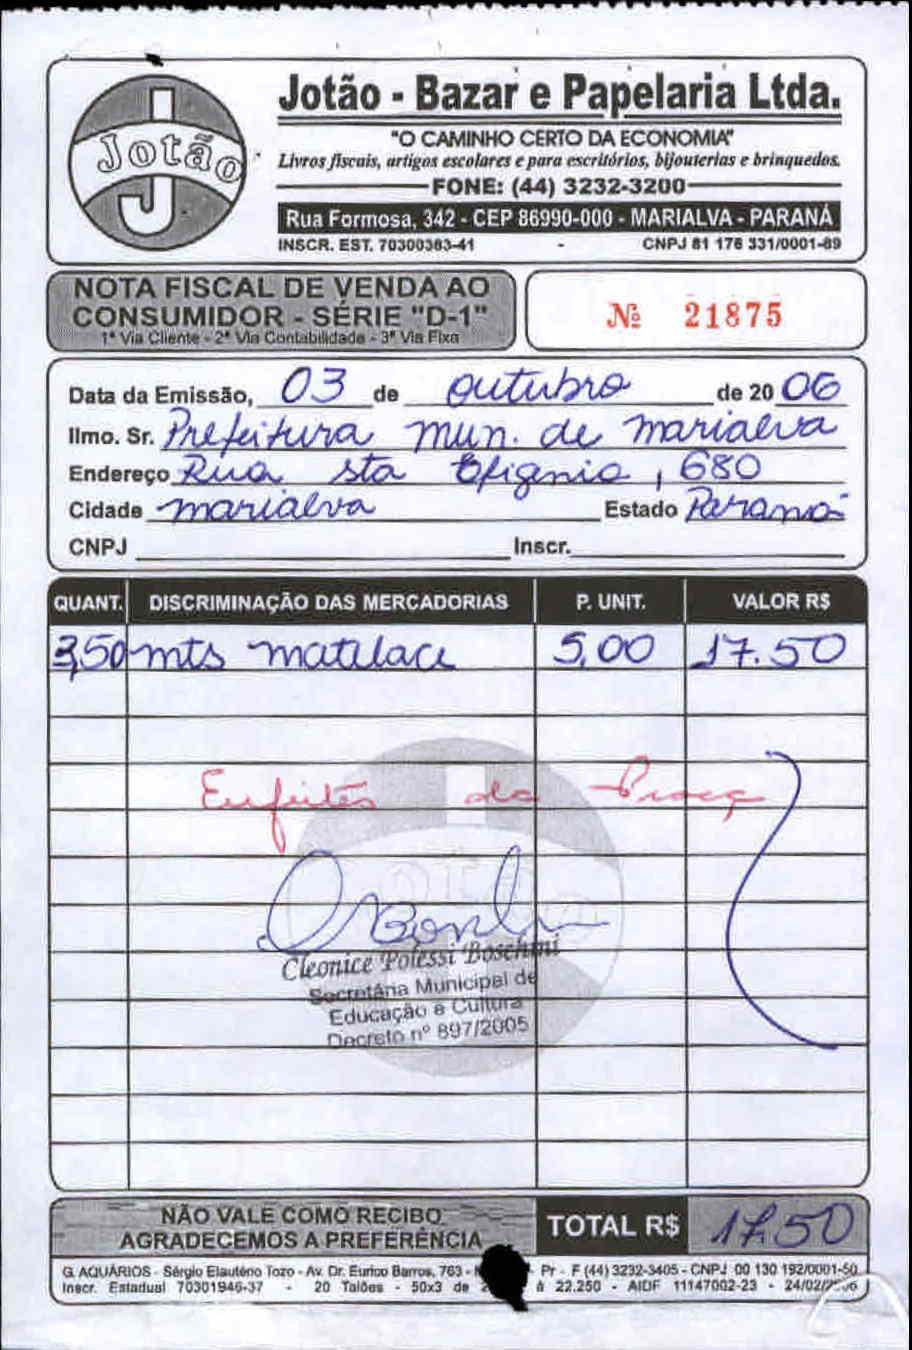 Jotão
Jotão - Bazar e Papelaria Ltda.
"O CAMINHO CERTO DA ECONOMIA"
Livros fiscais, artigos escolares e para escritórios, bijouterias e brinquedos.
FONE: (44) 3232-3200
Rua Formosa, 342 - CEP 86990-000 - MARIALVA - PARANÁ
INSCR. EST. 70300383-41 - CNPJ 81 176 331/0001-89
NOTA FISCAL DE VENDA AO
CONSUMIDOR - SÉRIE "D-1"
1ª Via Cliente - 2ª Via Contabilidade - 3ª Via Fixa
Nº 21875
Data da Emissão, 03 de outubro de 20 06
Ilmo. Sr. Prefeitura mun. de marialva
Endereço Rua sta Efigenia, 680
Cidade marialva Estado Paraná
CNPJ Inscr.
QUANT. DISCRIMINAÇÃO DAS MERCADORIAS P. UNIT. VALOR R$
3,50 mts matelace 5,00 17.50
Enfeites da Praça
Cleonice Polessi Boschini
Secretária Municipal de
Educação e Cultura
Decreto nº 897/2005
NÃO VALE COMO RECIBO
AGRADECEMOS A PREFERÊNCIA
TOTAL R$ 17,50
G. AQUÁRIOS - Sérgio Elautério Tozo - Av. Dr. Eurico Barros, 763 - Pr - F (44) 3232-3405 - CNPJ 00 130 192/0001-50
Inscr. Estadual 70301946-37 - 20 Talões - 50x3 de à 22.250 - AIDF 11147002-23 - 24/02/